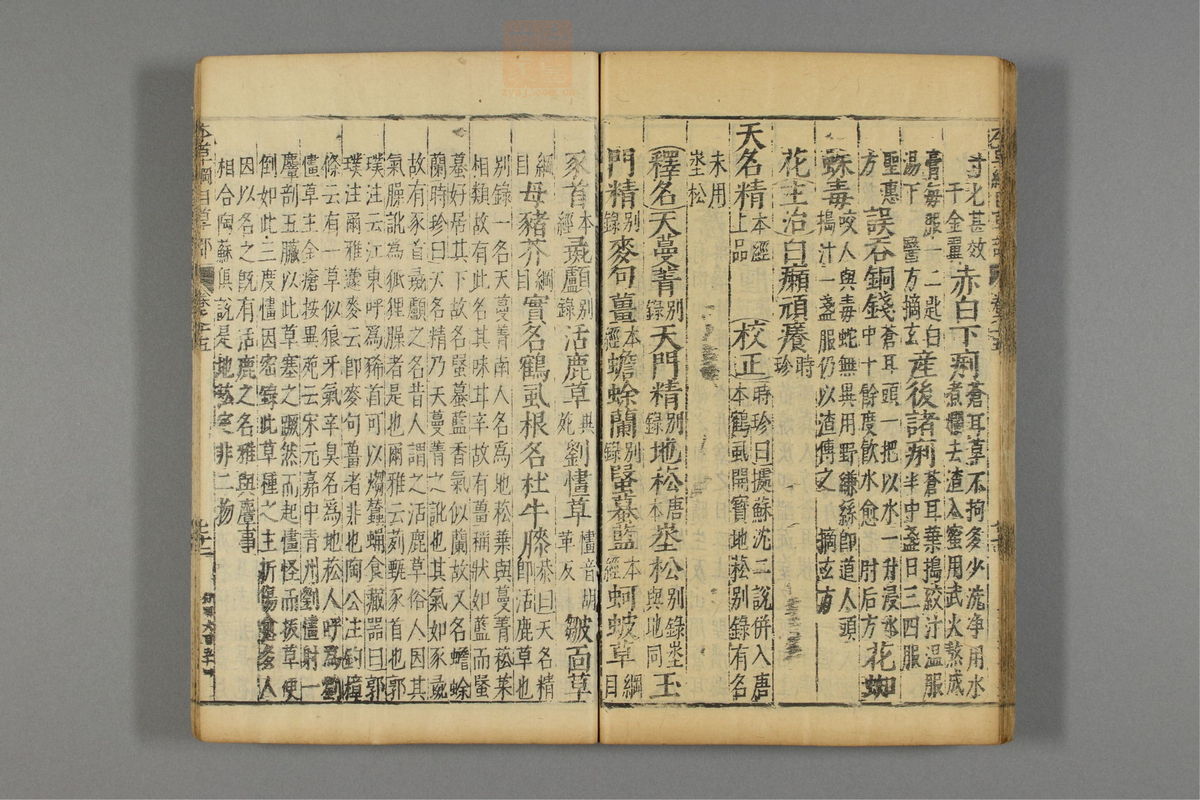 寸尤甚效
千金翼
赤白下痢
蒼耳草不拘多少洗净用水
煮爛去渣入蜜用武火熬成
膏每服一二匙白
湯下
醫方摘玄
産後諸痢
蒼耳葉搗絞汁温服
半中盞日三四服
聖惠
方
誤吞銅錢
蒼耳頭一把以水一升浸水
中十餘度飲水愈
肘后方
花蜘
蛛毒
咬人與毒蛇無異用野縧絲即道人頭
搗汁一盞服仍以渣傅之
摘玄方
花主治白癩頑癢
時
珍
天名精
本經
上品
校正
時珍曰據蘇沈二說併入唐
本鶴虱開寶地菘别錄有名
未用
埊松
釋名天蔓菁
别
錄
天門精
别
錄
地菘
唐
本
埊松
别錄埊
與地同
玉
門精
别
錄
麥句薑
本
經
蟾蜍蘭
别
錄
蝦蟇藍
本
經
蚵蚾草
綱
目
豕首
本
經
彘顱
别
錄
活鹿草
異
苑
劉㦎草
㦎音胡
革反
皺面草
綱
目
母豬芥
綱
目
實名鶴虱根名杜牛膝
恭曰天名精
即活鹿草也
别錄一名天蔓菁南人名爲地菘葉與蔓菁菘菜
相類故有此名其味甘辛故有薑稱狀如藍而蝦
蟇好居其下故名蝦蟇藍香氣似蘭故又名蟾蜍
蘭時珍曰天名精乃天蔓菁之訛也其氣如豕彘
故有豕首彘顱之名昔人謂之活鹿草俗人因其
氣臊訛爲狐狸臊者是也爾雅云茢薽豕首也郭
璞注云江東呼爲豨首可以煼蠶蛹食藏器曰郭
璞注爾雅蘧麥云即麥句薑者非也陶公注釣樟
條云有一草似狼牙氣辛臭名爲地菘人呼爲劉
㦎草主金瘡按異苑云宋元嘉中青州劉㦎射一
麞剖五臟以此草塞之蹶然而起㦎怪而拔草便
倒如此三度㦎因密錄此草種之主折傷愈多人
因以名之既有活鹿之名雅與麞事
相合陶蘇俱說是地菘定非二物